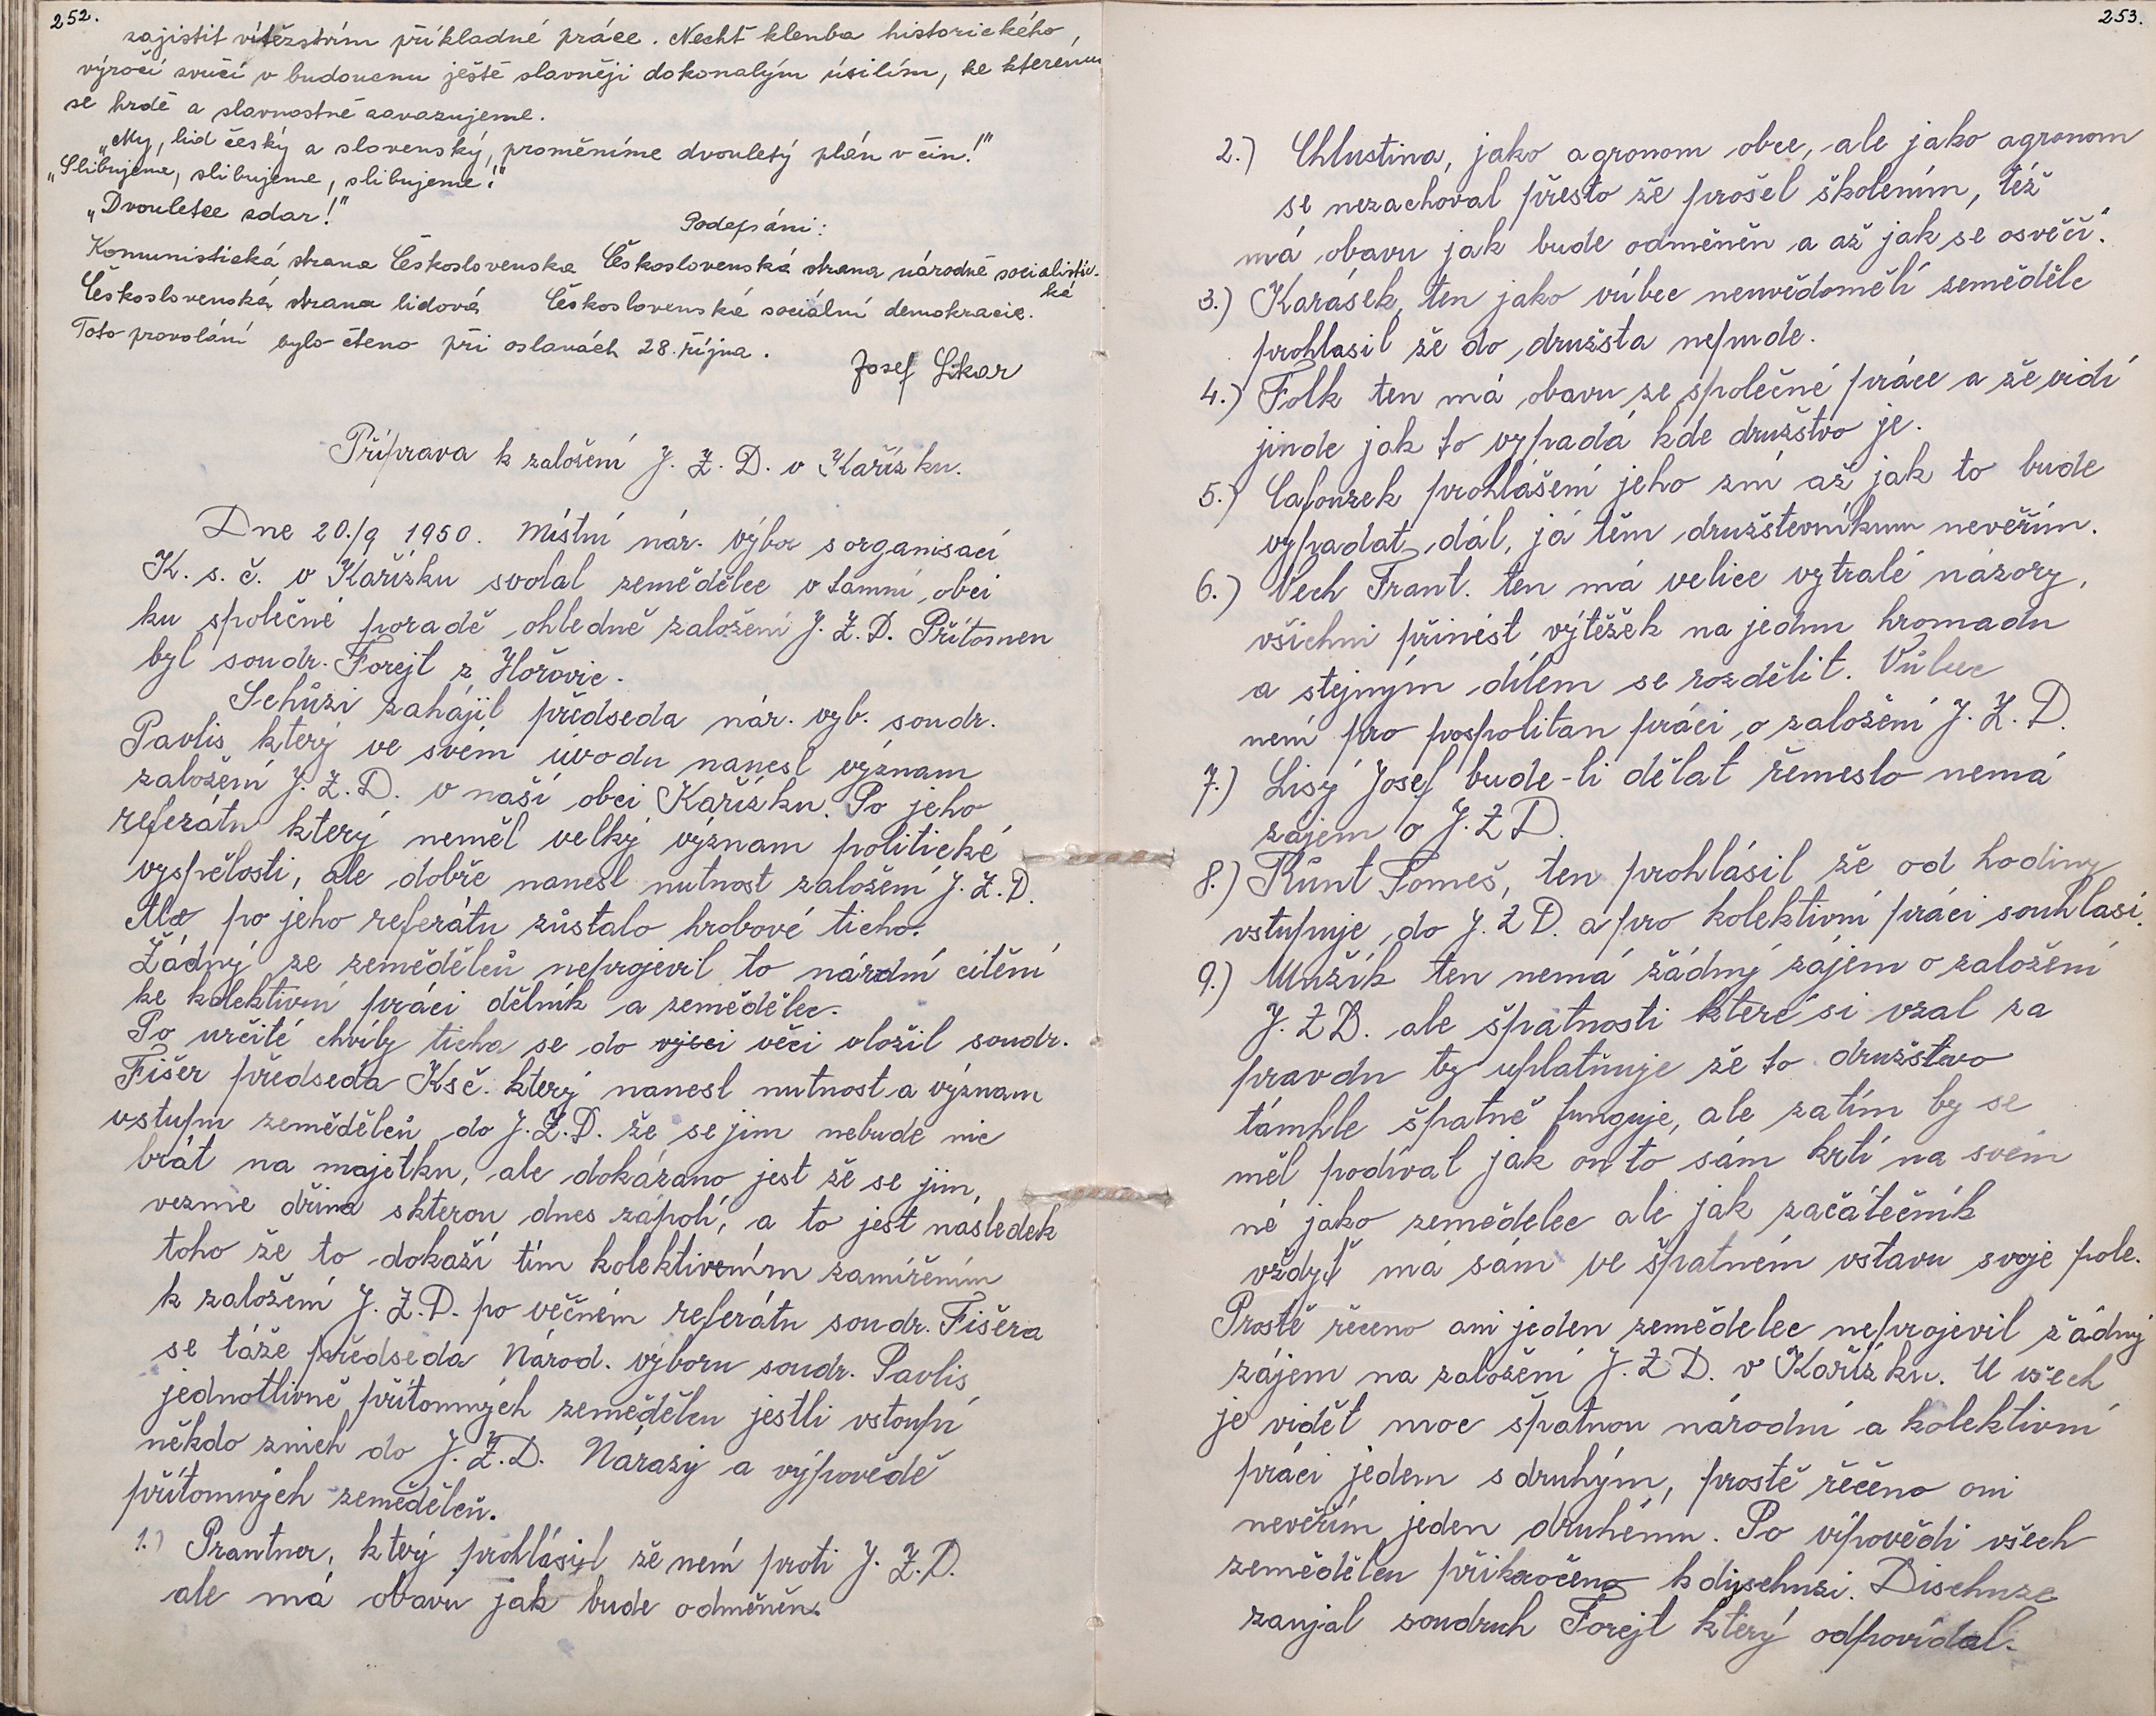 252.
zajistit vítězstvím příkladné práce. Nechť klenba historického,
výročí zvučí v budoucnu ještě slavněji dokonalým úsilím, ke kterému
se hrdě a slavnostně zavazujeme.
„My, lid český a slovenský, proměníme dvouletý plán v čin!"
„Slibujeme, slibujeme, slibujeme!"
„Dvouletce zdar!"
Podepsáni:
Komunistická strana Československa Československá strana národně socialistic-
ká
Československá strana lidová Československá sociální demokracie.
Toto provolání bylo čteno při oslavách 28. října.
Josef Sikar
Příprava k založení J. Z. D. v Kařízku.
Dne 20./9 1950. Místní nár. výbor s organisací
K. s. č. v Kařízku svolal zemědělce v tamní obci
ku společné poradě ohledně založení J. Z. D. Přítomen
byl soudr. Forejt z Hořovic.
Schůzi zahájil předseda nár. vyb. soudr.
Pavlis který ve svém úvodu nanesl význam
založení J. Z. D. v naší obci Kařízku. Po jeho
referátu který neměl velký význam politické
vyspělosti, ale dobře nanesl nutnost založení J. Z. D.
Ale po jeho referátu zůstalo hrobové ticho.
Žádný ze zemědělců neprojevil to národní cítění
ke kolektivní práci dělník a zemědělec.
Po určité chvíly ticha se do věci vložil soudr.
Fišer předseda Ksč. který nanesl nutnost a význam
vstupu zemědělců do J. Z. D. že se jim nebude nic
brát na majetku, ale dokázano jest že se jim,
vezme dřina skterou dnes zápolí, a to jest následek
toho že to dokaží tím kolektivním zamířením
k založení J. Z. D. po věčném referátu soudr. Fišera
se táže předseda Národ. výboru soudr. Pavlis
jednotlivně přítomných zemědělcu jestli vstoupí
někdo znich do J. Z. D. Nárazy a výpovědě
přítomných zemědělců.
1.) Prantner, který prohlásil že není proti J. Z. D.
ale má obavu jak bude odměněn.
253.
2.) Chlustina, jako agronom obce, ale jako agronom
se nezachoval přesto že prošel školením, též
má obavu jak bude odměněn a až jak se osvěčí.
3.) Karásek, ten jako vúbec neuvědomělí zemědělc
prohlasil že do družsta nepude.
4.) Folk ten má obavu ze společné práce a že vidí
jinde jak to vypadá kde družstvo je.
5.) Cafourek prohlášení jeho zní až jak to bude
vypadat dál, já těm družstevníkum nevěřím.
6.) Vech Frant. ten má velice vytralé názory,
všichni přinést výtěžek na jednu hromadu
a stejným dílem se rozdělit. Vůbec
není pro pospolitan práci, o založení J. Z. D.
7.) Lisý Josef bude-li dělat řemeslo nemá
zájem o J. Z D.
8.) Kůnt Tomeš, ten prohlásil že od hodiny
vstupuje do J. Z D. a pro kolektivní práci souhlasí.
9.) Mužík ten nemá žádný zájem o založení
J. Z D. ale špatnosti které si vzal za
pravdu ty uplatňuje že to družstvo
támhle špatně funguje, ale zatím by se
měl podíval jak on to sám krtí na svém
né jako zemědelec ale jak začátečník
vždyť má sám ve špatném vstavu svoje pole.
Prostě řečeno ani jeden zemědelec neprojevil žádný
zájem na založení J. Z D. v Kařízku. U všech
je vidět moc špatnou národní a kolektivní
práci jedem s druhým, prostě řečeno oni
nevěřím jeden druhému. Po výpovědi všech
zemědělcu přikročeno k dyschuzi. Dischuze
zaujal soudruh Forejt který odpovídal.